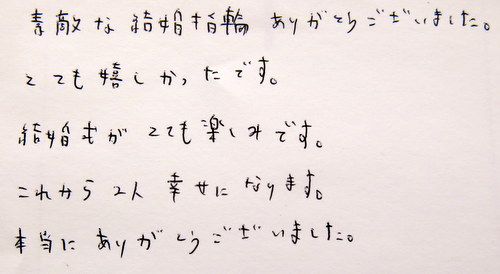 素敵な結婚指輪ありがとうございました。
とても嬉しかったです。
結婚式がとても楽しみです。
これから2人幸せになります。
本当にありがとうございました。